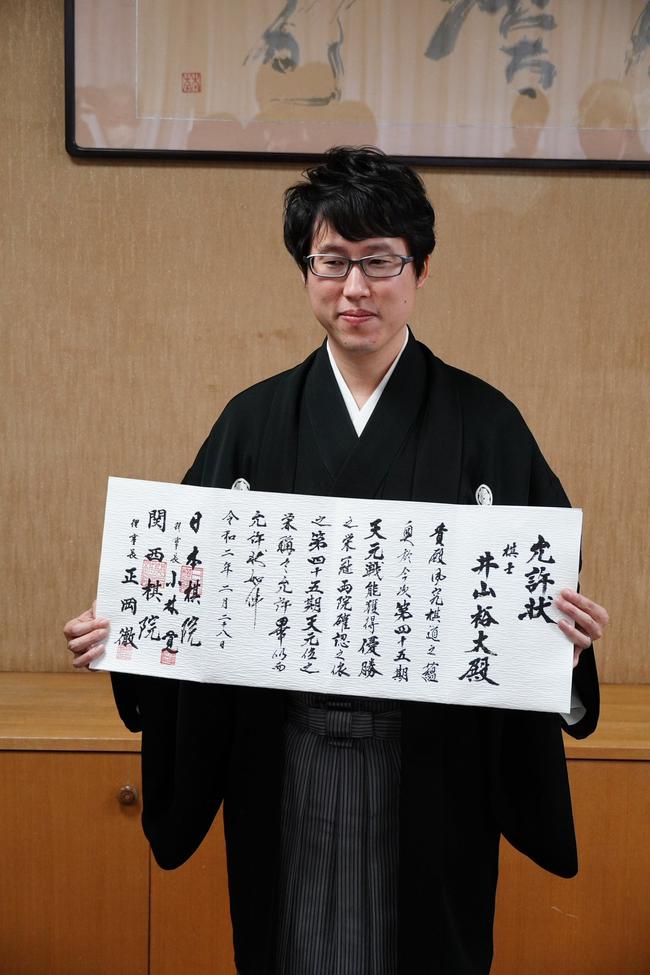 允許状
棋士
井山裕太殿
貴殿夙究棋道之蘊
奥於今次第四十五期
天元戦能獲得優勝
之栄冠両院確認之依
之第四十五期天元位之
栄称令允許畢仍而
允許状如件
令和二年二月二十八日
日本棋院
理事長 小林覚
関西棋院
理事長 正岡徹